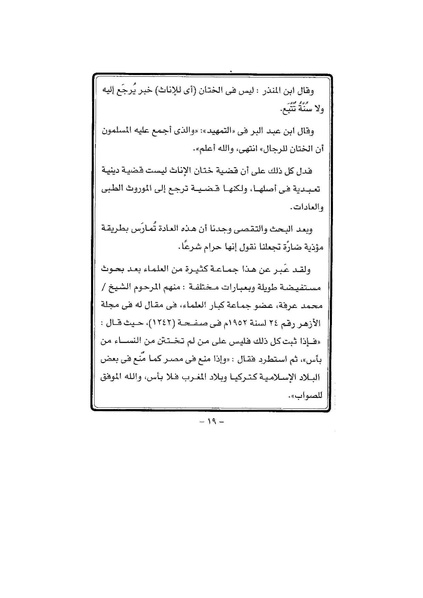 وقال ابن المنذر : ليس فى الختان (أى للإناث) خبر يُرجَع إليه
ولا سُنَّةٌ تُتَّبَع.
وقال ابن عبد البر فى «التمهيد»: «والذى أجمع عليه المسلمون
أن الختان للرجال» انتهى، والله أعلم».
فدل كل ذلك على أن قضية ختان الإناث ليست قضية دينية
تعبدية فى أصلها، ولكنها قضية ترجع إلى الموروث الطبى
والعادات.
وبعد البحث والتقصى وجدنا أن هذه العادة تُمارَس بطريقة
مؤذية ضارَّة تجعلنا نقول إنها حرام شرعًا.
ولقد عَبر عن هذا جماعة كثيرة من العلماء بعد بحوث
مستفيضة طويلة وبعبارات مختلفة : منهم المرحوم الشيخ /
محمد عرفة، عضو جماعة كبار العلماء، فى مقال له فى مجلة
الأزهر رقم ٢٤ لسنة ١٩٥٢م فى صفحة (١٢٤٢)، حيث قال :
«فإذا ثبت كل ذلك فليس على من لم تختتن من النساء من
بأس»، ثم استطرد فقال : «وإذا منع فى مصر كما مُنع فى بعض
البلاد الإسلامية كتركيا وبلاد المغرب فلا بأس، والله الموفق
للصواب».
- ١٩ -